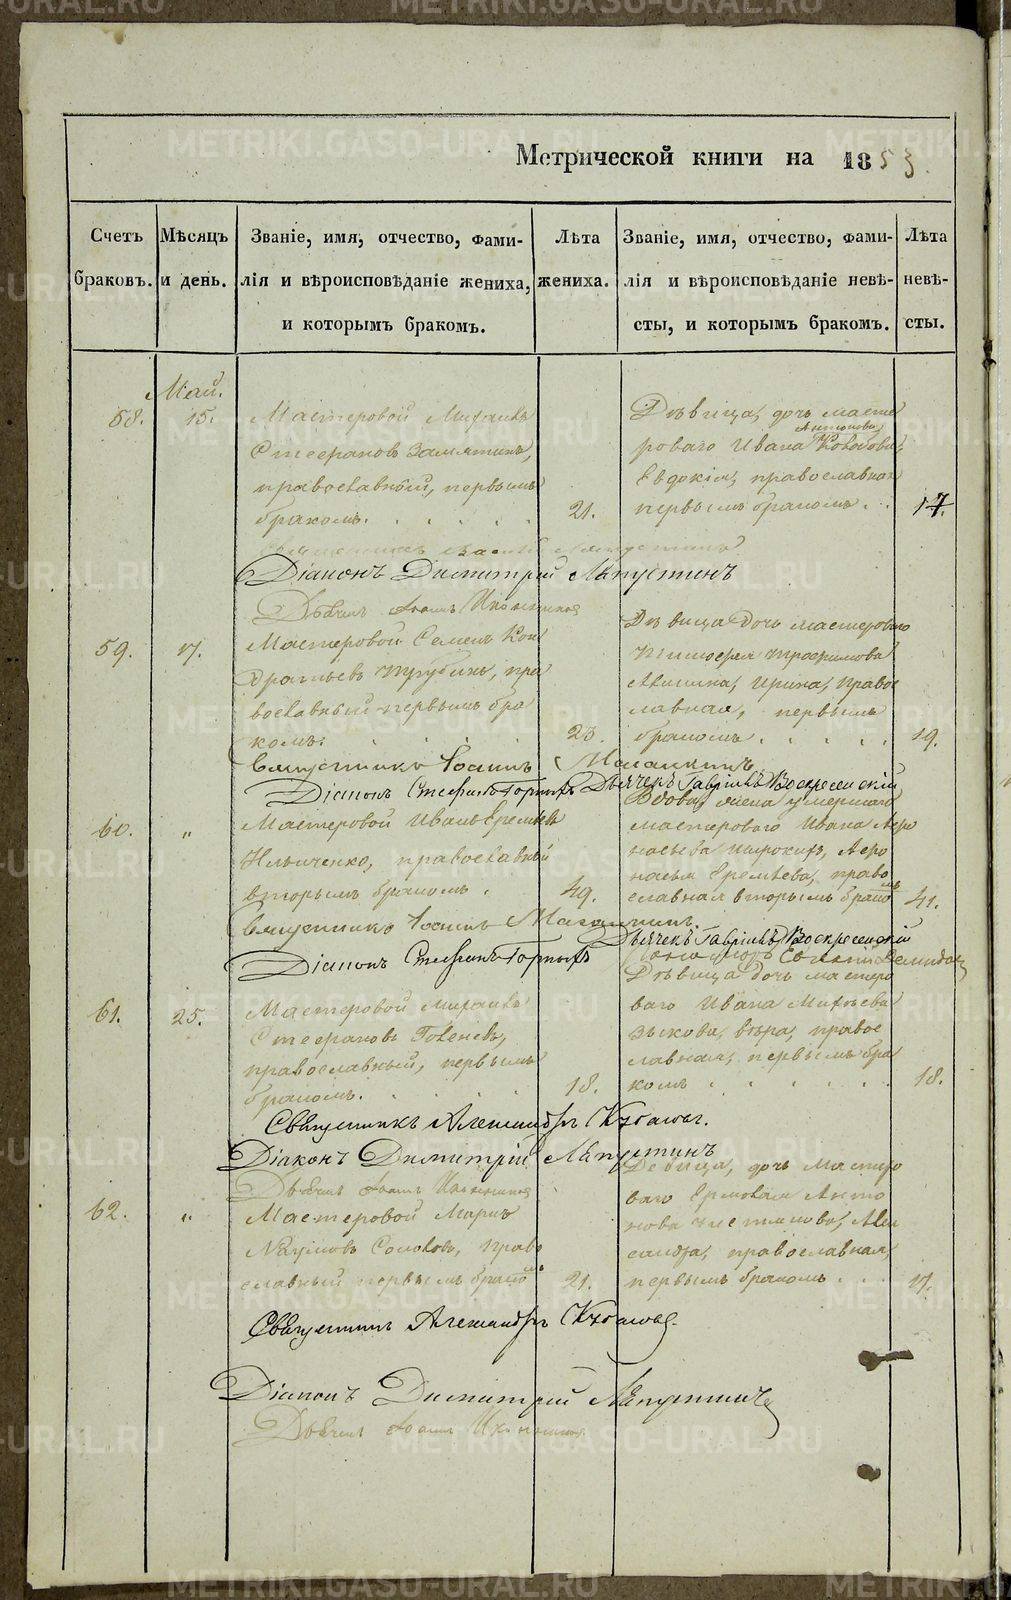 Метрической книги на 1853.
Счетъ браковъ.
Мѣсяцъ и день.
Званіе, имя, отчество, фами-
лія и вѣроисповѣданіе жениха,
и которымъ бракомъ.
Лѣта
жениха.
Званіе, имя, отчество, фами-
лія и вѣроисповѣданіе невѣ-
сты, и которымъ бракомъ.
Лѣта
невѣ-
сты.
Май.
58. 15.
Мастеровой Михаилъ
Стефановъ Замятинъ,
православный, первымъ
бракомъ. 21.
Дѣвица, дочь масте
роваго Ивана Антонова
Евдокія, православная
первымъ бракомъ 17.
Діаконъ Димитрій Ляпустинъ
Дьячекъ Іоаннъ
59. 17.
Мастеровой Семенъ Кон
дратьевъ Трубинъ, пра
вославный первымъ бра
комъ. 23.
Дѣвица дочь мастероваго
Тимофея Трофимова
Ирина, Право
славная, первымъ
бракомъ 19.
Священникъ Іоаннъ
Діаконъ Стефанъ Горныхъ Дьячекъ Гавріилъ Воскресенскій
60. "
Мастеровой Иванъ Еремѣевъ
Ильиченко, православный
вторымъ бракомъ. 49.
Вдова, жена умершаго
мастероваго Ивана Афо
насьева Широкихъ, Афо
насья Еремѣева, право
славная вторымъ бракомъ 41.
Священникъ Іоаннъ
Дьячекъ Гавріилъ Воскресенскій
Діаконъ Стефанъ Горныхъ
Пономарь Евгеній Демидовъ
61. 25.
Мастеровой Михаилъ
Стефановъ Голеневъ,
православный, первымъ
бракомъ. 18.
Дѣвица дочь мастеро
ваго Ивана Михѣева
Зыкова, Вѣра, право
славная, первымъ бра
комъ 18.
Священникъ Александръ
Діаконъ Димитрій Ляпустинъ
Дьячекъ Іоаннъ
62. "
Мастеровой Маркъ
Наумовъ Соловъ, право
славный первымъ бракомъ 21.
Девица, дочь мастеро
ваго Ермолая Анто
нова Алек
сандра, православная,
первымъ бракомъ 17.
Священникъ Александръ
Діаконъ Димитрій Ляпустинъ
Дьячекъ Іоаннъ
METRIKI.GASO-URAL.RU